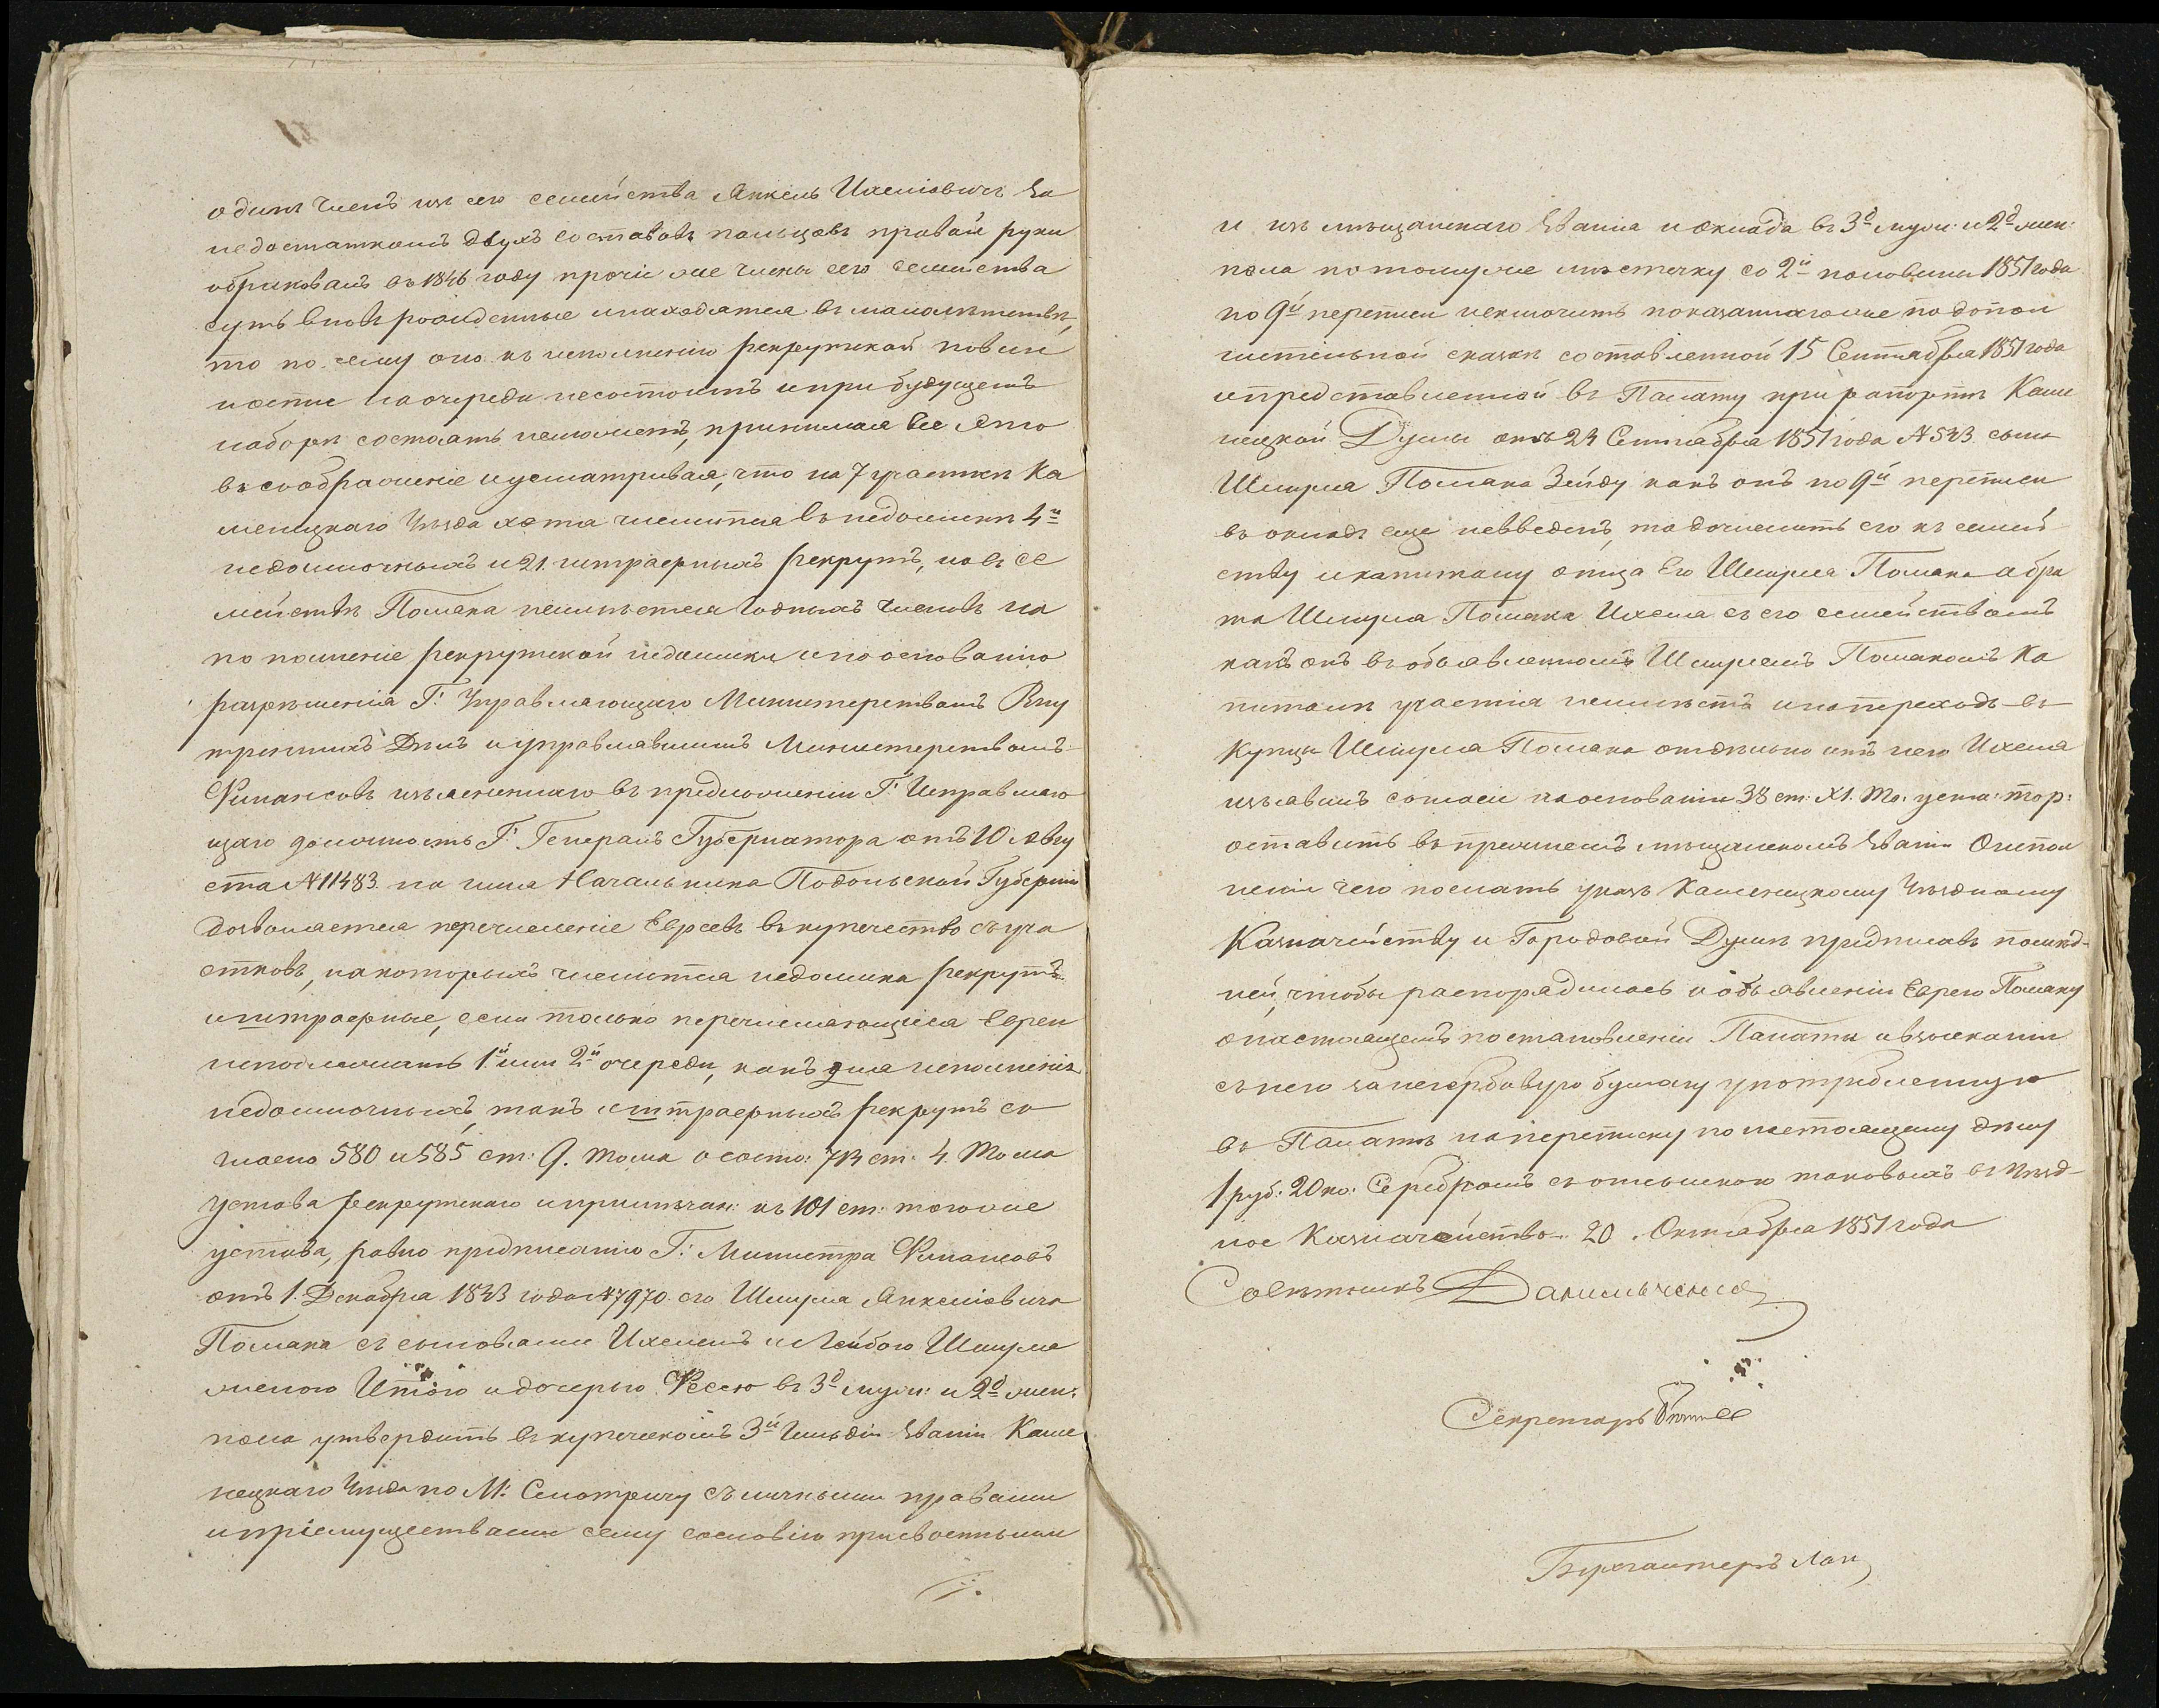 одинъ членъ изъ его семейства Янкель Ихелiовичъ за
недостаткомъ двухъ составовъ пальцовъ правой руки
обракованъ въ 1846 году прочiе же члены его семейства
суть вновь рожденные и находятся въ малолѣтствѣ,
то по сему оно къ исполненiю рекрутской повин
ности на очереди несостоитъ и при будущемъ
наборѣ состоять неможетъ, принимая все это
въ соображенiе и усматривая, что на 7 участкѣ Ка
менецкаго Уѣзда хотя числится въ недоимкѣ 4й
недоимочныхъ и 21. штрафныхъ рекрутъ, но въ се
мействѣ Полака неимѣется годныхъ членовъ на
пополненiе рекрутской недоимки и по основанiю
разрѣшенiя Г: Управляющаго Министерствомъ Вну
треннихъ Дѣлъ и управлявшимъ Министерствомъ
Финансовъ изъясненнаго въ предложенiи Г. Исправляю
щаго должность Г: Генералъ Губернатора отъ 10 Авгу
ста N 11483. на имя Начальника Подольской Губернiи
дозволяется перечисленiе Евреевъ въ купечество съ уча
стковъ, на которыхъ числится недоимка рекрутъ
и штрафные, если только перечисляющiеся Евреи
неподлежатъ 1й или 2й очереди, какъ для исполненiя
недоимочныхъ, такъ и штрафныхъ рекрутъ со
гласно 580 и 585 ст: 9. Тома о состо: 713 ст: 4. Тома
Устава рекрутскаго и примѣчан: къ 101 ст: тогоже
устава, равно предписанiю Г: Министра Финансовъ
отъ 1. Декабря 1843 года N 7970. его Шмуля Янкелiовича
Полака съ сыновьями Ихелемъ и Лейбою Шмуля
женою Итою и дочерью Фесею въ 3д муж: и 2д жен:
пола утвердить въ купеческомъ 3й Гильдiи званiи Каме
нецкаго Уѣзда по М: Смотричу съ личными правами
и преимуществами сему сословiю присвоенными
и изъ мѣщанскаго званiя и оклада въ 3д муж: и 2д жен:
пола по томуже мѣстечку со 2й половины 1851 года
по 9й переписи исключить показаннагоже по допол
нительной сказкѣ составленной 15 Сентября 1851 года
и представленной въ Палату при рапортѣ Каме
нецкой Думы отъ 24 Сентября 1851 года N 543. сына
Шмуля Полака Зейду какъ онъ по 9й переписи
въ окладъ еще невведенъ, то дочислить его къ семей
ству и капиталу отца его Шмуля Полака а бра
та Шмуля Полака Ихеля съ его семействомъ
какъ онъ въ объявленномъ Шмулемъ Полакомъ Ка
питалѣ участiя неимѣетъ и на переходъ въ
купцы Шмуля Полака отдѣльно отъ него Ихеля
изъявилъ согласiе на основанiи 38 ст: XI. То: уста: тор:
оставить въ прежнемъ мѣщанскомъ званiи О испол
ненiи чего послать указъ Каменецкому Уѣздному
Казначейству и Городовой Думѣ предписавъ послѣд-
ней, чтобы распорядилась и объявленiи Еврею Полаку
о настоящемъ постановленiи Палаты и взысканiи
съ него за негербовую бумагу употребленную
въ Палатѣ на переписку по настоящему дѣлу
1 руб: 20 ко: Серебромъ съ отсылкою таковыхъ въ Уѣзд-
ное Казначейство. 20. Октября 1851 года
Совѣтникъ Данильченко
Секретарь
Бухгалтеръ